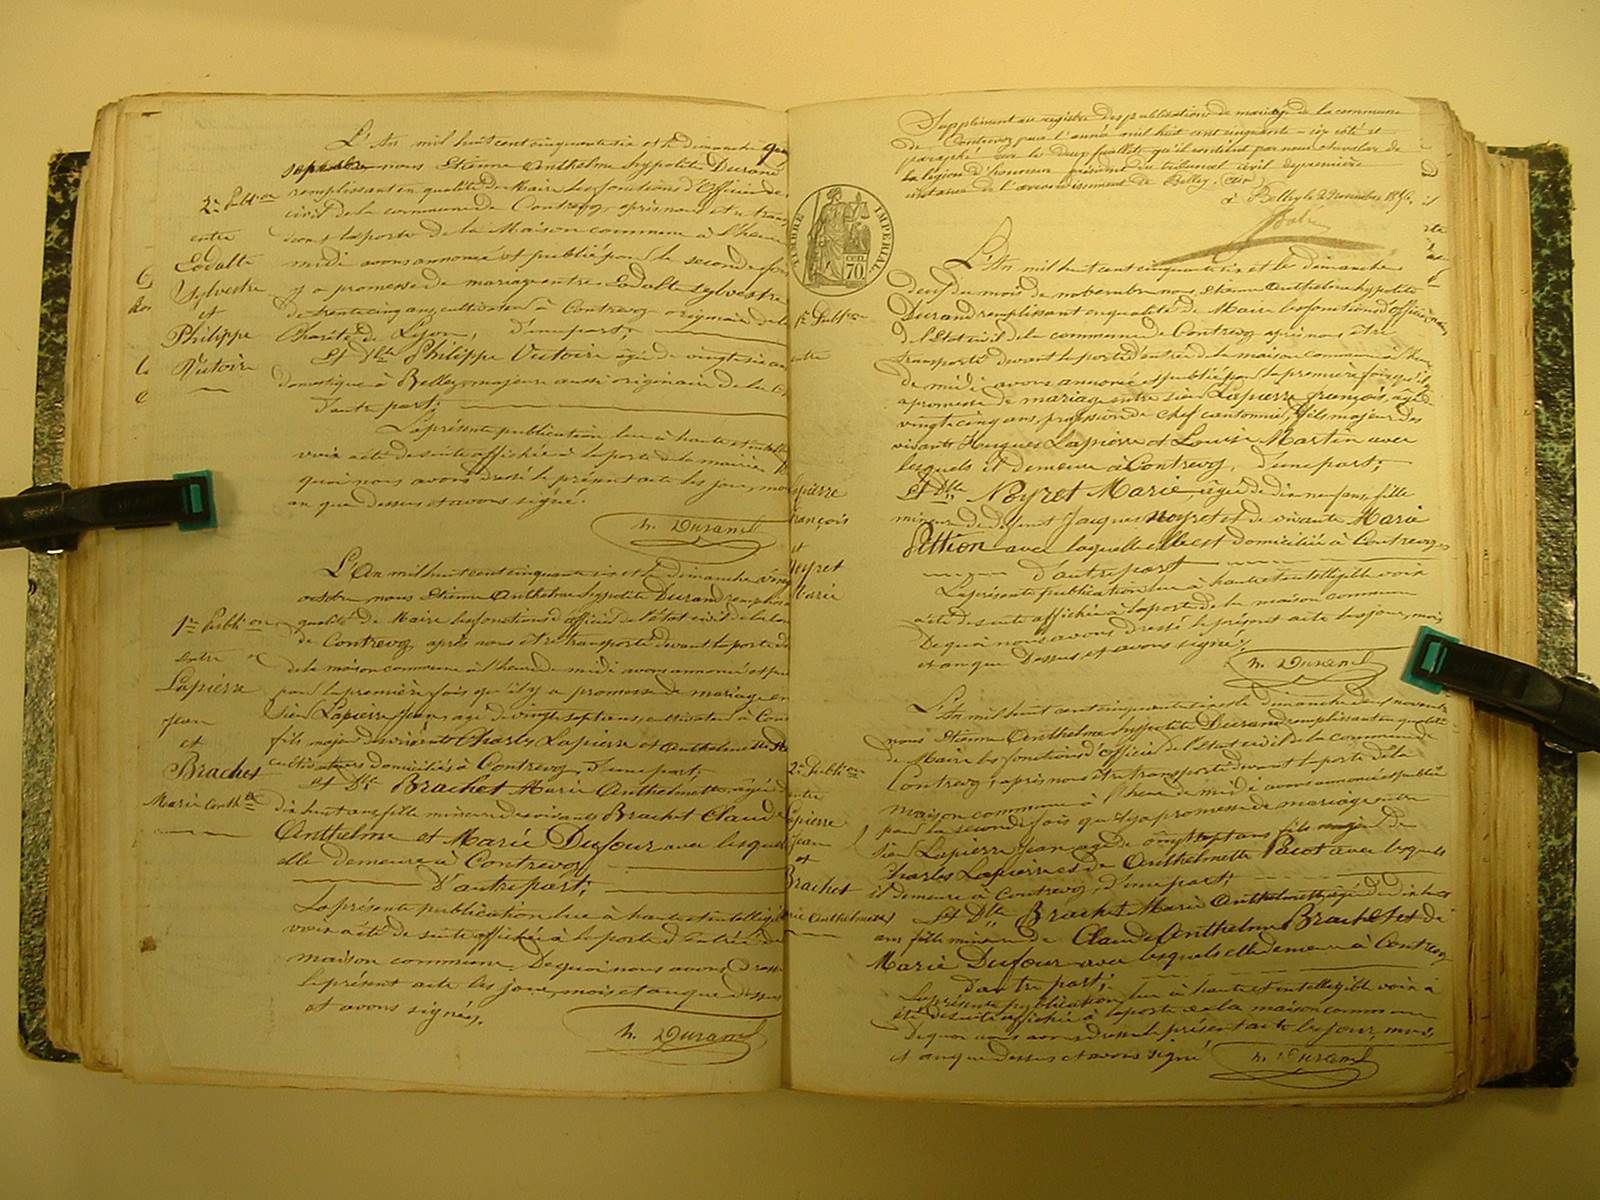 L'An mil huit cent cinquante six et le dimanche
septembre nous Etienne Anthelme hyppolite Durand
remplissant en qualité de Maire les fonctions d'Officier de
civil de la commune de Contrevoz, après nous etre trans
devant la porte de la Maison commune à l'heure
midi avons annoncé et publié pour la seconde fois
y a promesse de mariage entre Lodalte Sylvestre
de trente cinq ans, cultivateur à Contrevoz originaire de la
Charité de Lyon, d'une part;
Et Dlle Philippe Victoire agée de vingt six ans
domestique à Belley, majeure aussi originaire de la
d'autre part;
La présente publication lue à haute et intelli
voix a été de suite affichée à la porte de la mairie
quoi nous avons dressé le présent acte les jour, mois
an que dessus et avons signé.
h. Durand
2e Publion
entre
Lodalte
Sylvestre
et
Philippe
Victoire
L'An mil huit cent cinquante six et le dimanche vingt
octobre, nous Etienne Anthelme hyppolite Durand remplissa
qualité de Maire les fonctions d'officier de l'état civil de la com
de Contrevoz, après nous être transporté devant la porte de
de la maison commune à l'heure de midi avons annoncé et pu
pour la première fois qu'il y a promesse de mariage en
Sieur Lapierre Jean, agé de vingt sept ans, cultivateur à Con
fils majeur des vivants Charles Lapierre et Anthelmette
cultivateurs domiciliés à Contrevoz, d'une part;
et Dlle Brachet Marie Anthelmette, agée d
dix huit ans fille mineure des vivants Brachet Claude
Anthelme et Marie Dufour avec lesquels
elle demeure à Contrevoz
D'autre part;
La présente publication lue à haute et intelligible
voix a été de suite affichée à la porte d'entrée de
maison commune. De quoi nous avons dressé
le présent acte les jour, mois et an que dessus
et avons signé.
h. Durand
1re Publion
entre
Lapierre
Jean
et
Brachet
Marie Anthte
Supplément au registre des publications de mariage de la commune
de Contrevoz pour l'année mil huit cent cinquante-six coté et
paraphé sur les deux feuillets qu'il contient par nous chevalier de
la légion d'honneur président du tribunal civil de première
instance de l'arrondissement de Belley. (Ain)
à Belley le 2 Novembre 1856.
TIMBRE IMPERIAL
CEN.
70
L'An mil huit cent cinquante six et le dimanche
deux du mois de nobembre nous Etienne Anthelme hyppolite
Durand remplissant en qualité de Maire les fonctions d'Officier
de l'Etat civil de la commune de Contrevoz après nous être
transporté devant la porte d'entrée de la maison commune à l'heure
de midi avons annoncé et publié pour la première fois qu'il y
a promesse de mariage entre sieur Lapierre françois, âgé de
vingt cinq ans, profession de chef cantonnier, fils majeur des
vivants Hugues Lapierre et Louise Martin avec
lesquels il demeure à Contrevoz, d'une part;
Et Dlle Neyret Marie âgée de dix neuf ans, fille
mineure de défunt Jacques Neyret et de vivante Marie
Pittion avec laquelle elle est domiciliée à Contrevoz
d'autre part
La présente publication lue à haute et intelligible voix
a été de suite affichée à la porte de la maison commune
De quoi nous avons dressé le présent acte les jour, mois
et an que Dessus et avons signé.
h. Durand
1re Publion
entre
apierre
rançois
et
Neyret
Marie
L'An mil huit cent cinquante six et le dimanche deux novembre
nous Etienne Anthelme hyppolite Durand remplissant en qualité
de Maire les fonctions d'Officier de l'Etat civil de la commune de
Contrevoz, après nous être transporté devant la porte de la
maison commune à l'heure de midi avons annoncé et publié
pour la seconde fois qu'il y a promesse de mariage entre
sieur Lapierre Jean agé de vingt sept ans fils majeur de
Charles Lapierre et de Anthelmette Pacot avec lesquels
il demeure à Contrevoz, d'une part;
Et Dlle Brachet Marie Anthelmette, agée de dix huit
ans fille mineure de Claude Anthelme Brachet et de
Marie Dufour avec lesquels elle demeure à Contrevoz
d'autre part;
La présente publication, lue à haute et intelligible voix a
été de suite affichée à la porte de la maison commune
De quoi nous avons dressé le présent acte les jour, mois,
et an que dessus et avons signé
h. Durand
2e Publion
entre
apierre
Jean
et
Brachet
arie Anthelmette